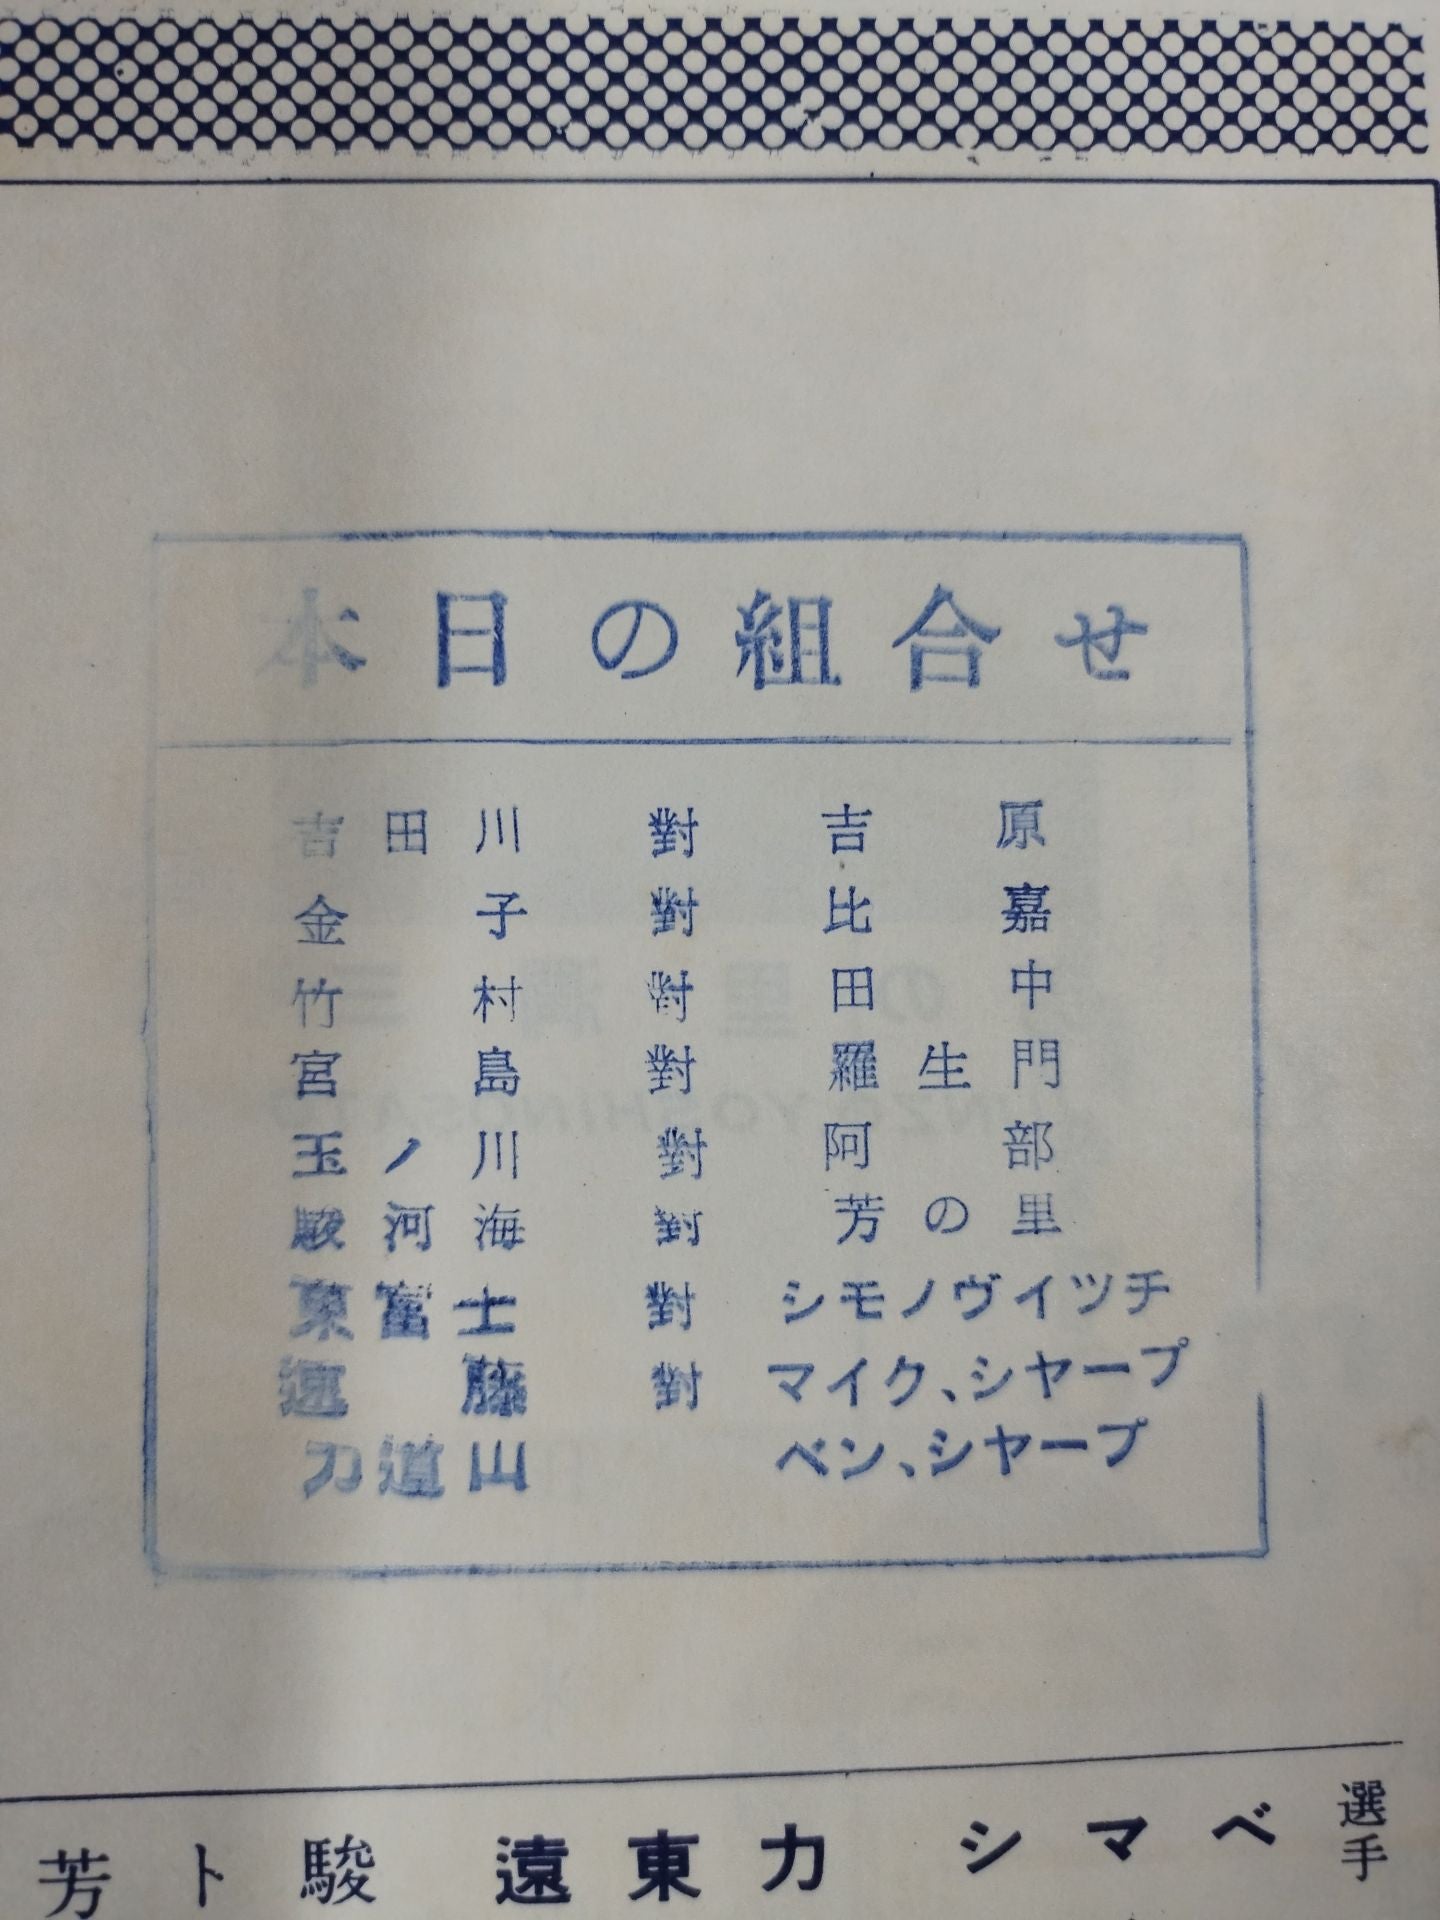 本日の組合せ
吉田川 對 吉原
金子 對 比嘉
竹村 對 田中
宮島 對 羅生門
玉ノ川 對 阿部
駿河海 對 芳の里
東富士 對 シモノヴイツチ
遠藤 對 マイク、シヤープ
力道山 ベン、シヤープ
選手
ベ マ シ 力 東 遠 駿 ト 芳